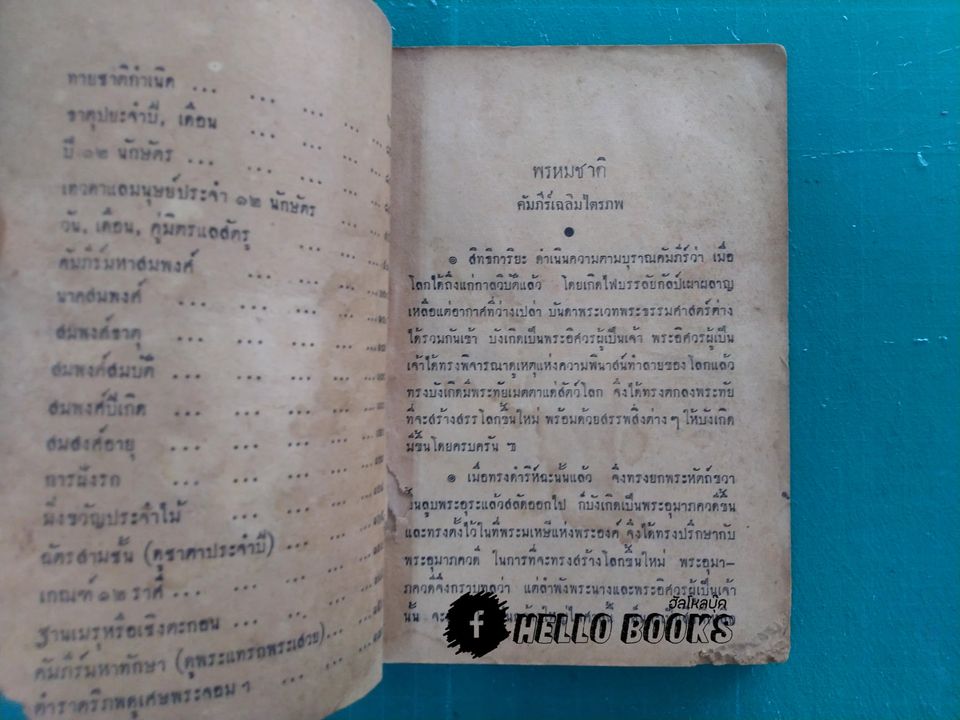 ทายชาติกำเนิด ... ... ...
ธาตุประจำปี, เดือน ... ... ...
ปี ๑๒ นักษัตร ... ... ... ...
เทวดาแลมนุษย์ประจำ ๑๒ นักษัตร ...
วัน, เดือน, คู่มิตรแลสัตรู ... ...
คัมภีร์มหาสมพงศ์ ... ... ...
นาคสมพงศ์ ... ... ... ...
สมพงศ์ธาตุ ... ... ... ...
สมพงศ์สมบัติ ... ... ... ...
สมพงศ์ปีเกิด ... ... ... ...
สมสงศ์อายุ ... ... ... ...
การฝังรก ... ... ... ...
มิ่งขวัญประจำไม้ ... ... ...
ฉัตรสามชั้น (ดูชาตาประจำปี) ... ...
เกณฑ์ ๑๒ ราศี ... ... ...
ฐานเมรุหรือเชิงตะกอน ... ... ...
คัมภีร์มหาทักษา (ดูพระแทรกพระเสวย) ...
ตำราตรีภพดูเศษพระจอม ฯ ... ...
พรหมชาติ
คัมภีร์เฉลิมไตรภพ
●
๏ สิทธิการิยะ ดำเนินความตามบุราณคัมภีร์ว่า เมื่อ
โลกได้ถึงแก่กาลวิบัติแล้ว โดยเกิดไฟบรรลัยกัลป์เผาผลาญ
เหลือแต่อากาศที่ว่างเปล่า บันดาพระเวทพระธรรมศาสตร์ต่าง
ได้รวมกันเข้า บังเกิดเป็นพระอิศวรผู้เป็นเจ้า พระอิศวรผู้เป็น
เจ้าได้ทรงพิจารณาดูเหตุแห่งความพินาสน์ทำลายของโลกแล้ว
ทรงบังเกิดมีพระทัยเมตตาแด่สัตว์โลก จึงได้ทรงตกลงพระทัย
ที่จะสร้างสรรโลกขึ้นใหม่ พร้อมด้วยสรรพสิ่งต่าง ๆ ให้บังเกิด
มีขึ้นโดยครบครัน ฯ
๏ เมื่อทรงดำริห์ฉะนั้นแล้ว จึงทรงยกพระหัตถ์ขวา
ขึ้นลูบพระอุระแล้วสลัดออกไป ก็บังเกิดเป็นพระอุมาภควดีขึ้น
และทรงตั้งไว้ในที่พระมเหษีแห่งพระองค์ จึงได้ทรงปรึกษากับ
พระอุมาภควดี ในการที่จะทรงสร้างโลกขึ้นใหม่ พระอุมา-
ภควดีจึงกราบทูลว่า แต่ลำพังพระนางและพระอิศวรผู้เป็นเจ้า
นั้น จะ
ฮัลโหลบุ๊ค
f HELLO BOOKS